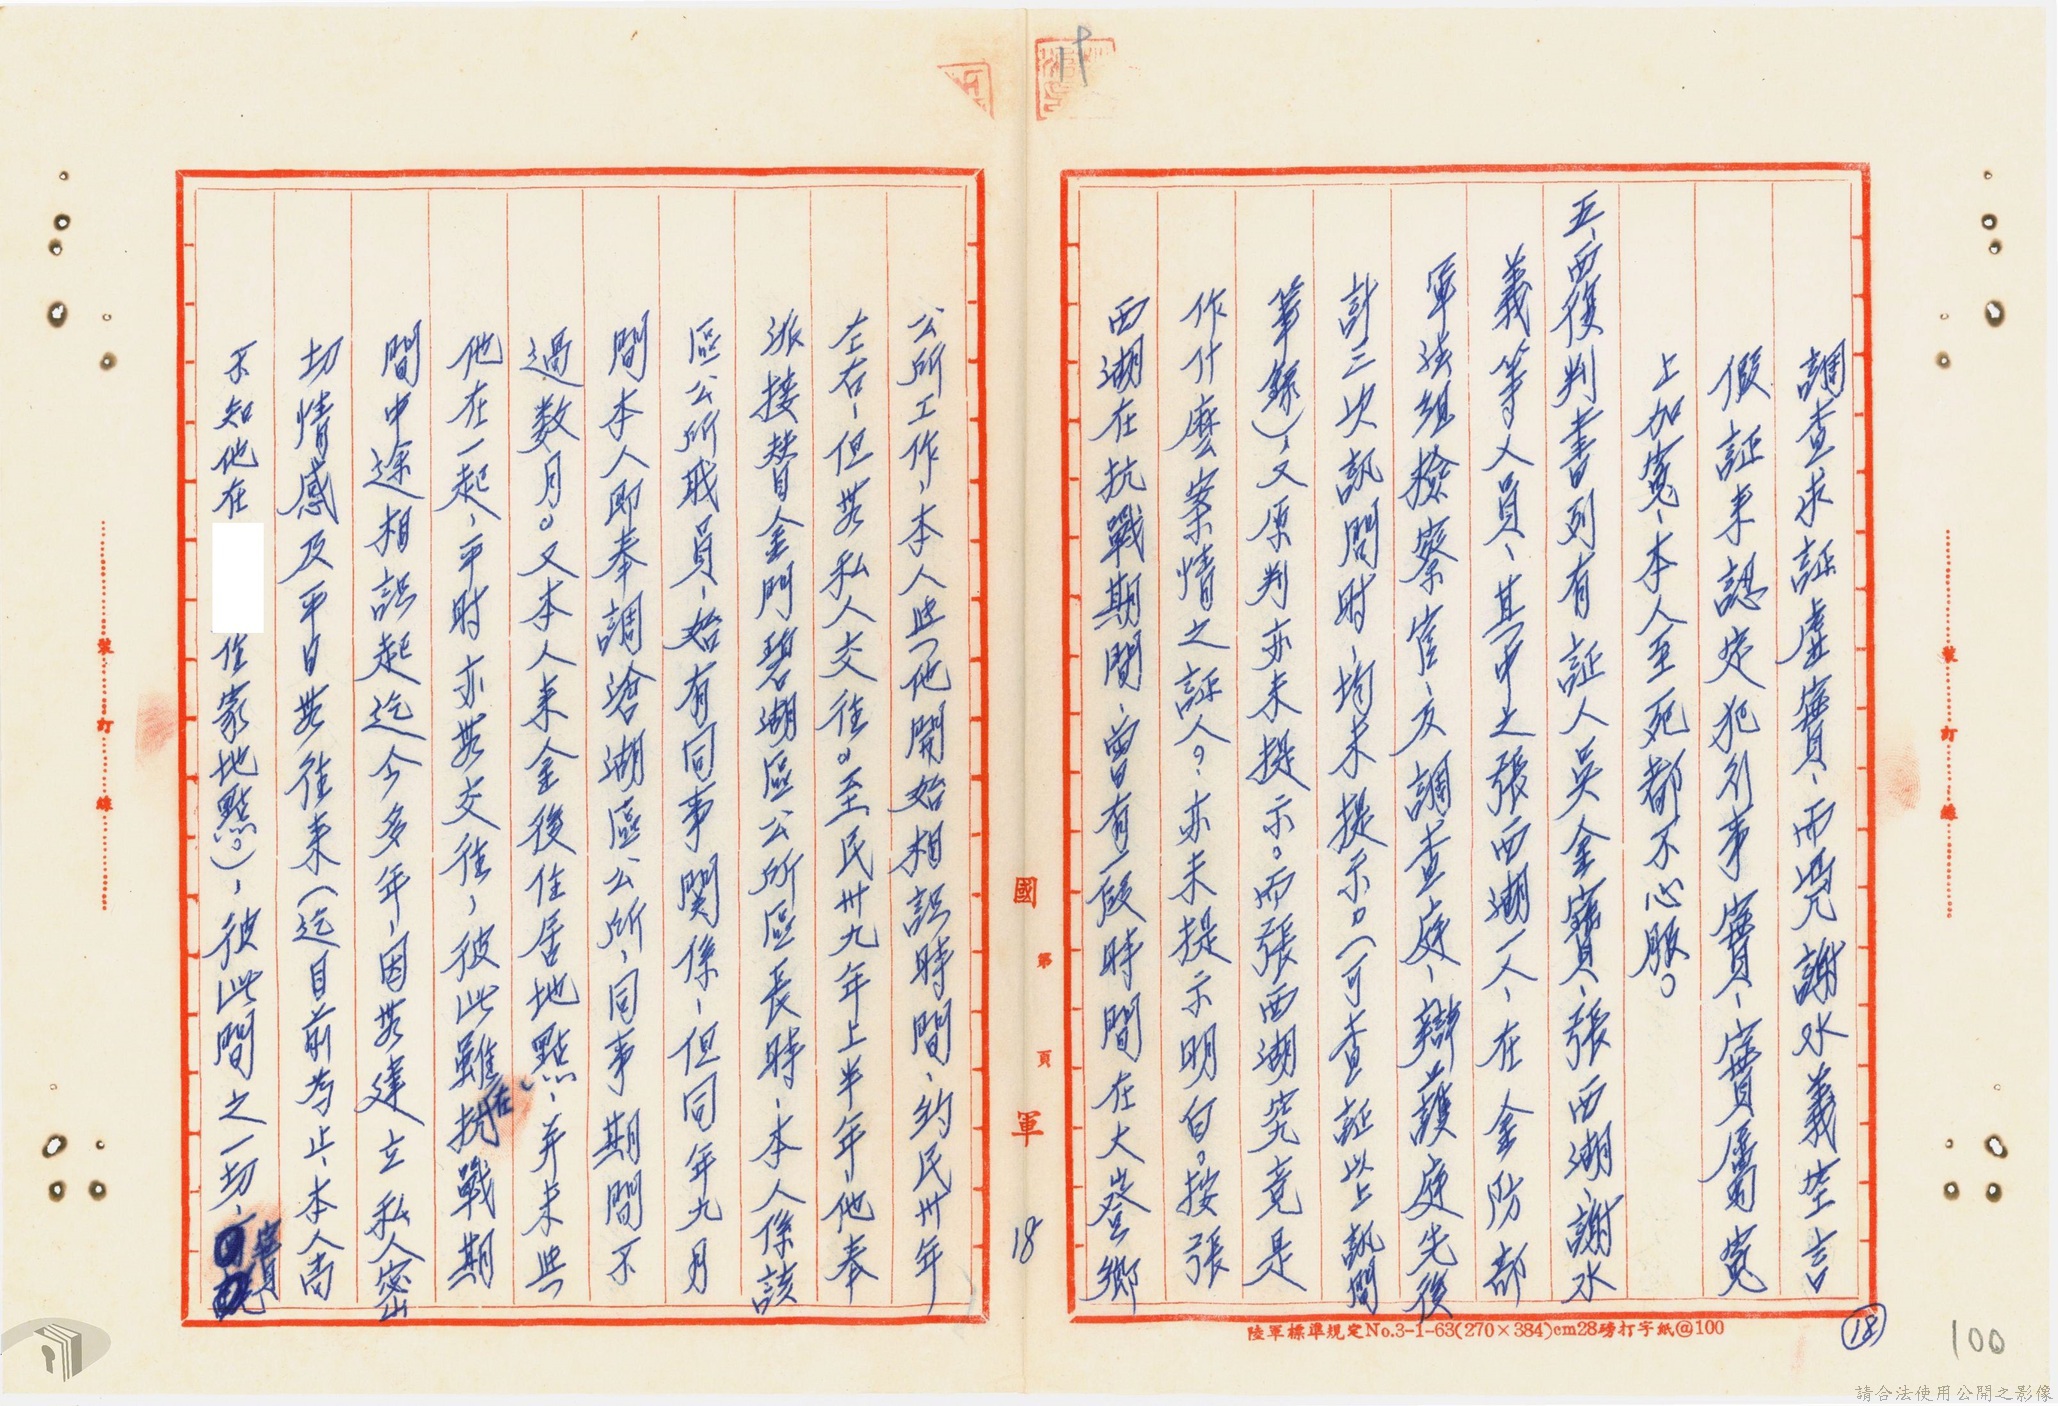 調查求証虛實、而凭謝水義空言
假証來認定犯行事實、實屬冤
上加寃、本人至死都不心服。
五、西復判書列有証人吳金寶、張西湖、謝水
義等人員、其中之張西湖一人、在金防部
軍法組檢察官、及調查庭、辯護庭先後
計三次訊問時、均未提示。(可查証以上訊問
筆錄)、又原判亦未提示。而張西湖究竟是
作什麼案情之証人。亦未提示明白。按張
西湖在抗戰期間、曾有一段時間在大嶝鄉
公所工作、本人與他開始相認時間、約民卅年
左右、但無私人交往。至民卅九年上半年、他奉
派接替金門碧湖區公所區長時、本人係該
區公所職員、始有同事関係、但同年九月
間本人即奉調滄湖區公所、同事期間不
過数月。又本人來金後住居地點、并未與
他在一起、平時亦無交往，彼此雖在抗戰期
間中途相認起迄今多年，因無建立私人密
切情感及平日無往來(迄目前为止、本人尚
不知他在 住家地點。)，彼此間之一切、
國軍
第 頁
18
陸軍標準規定No.3-1-63(270×384)cm28磅打字紙@100
18
100
裝
訂
線
裝
訂
線
請合法使用公開之影像